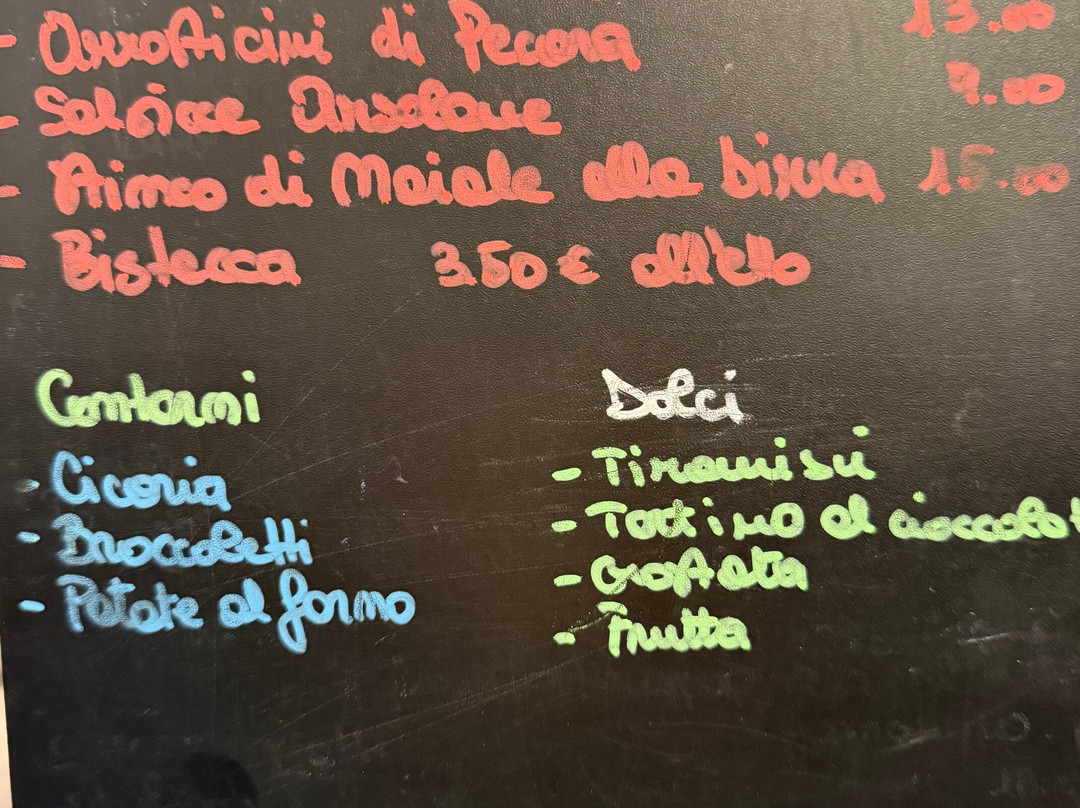 - Arrosticini di Pecora 13.00
- Salsicce Arsolane 9.00
- Stinco di Maiale alla birra 15.00
- Bistecca 3.50 € all'etto
Contorni
- Cicoria
- Broccoletti
- Patate al forno
Dolci
- Tiramisù
- Tortino al cioccolat
- Crostata
- Frutta